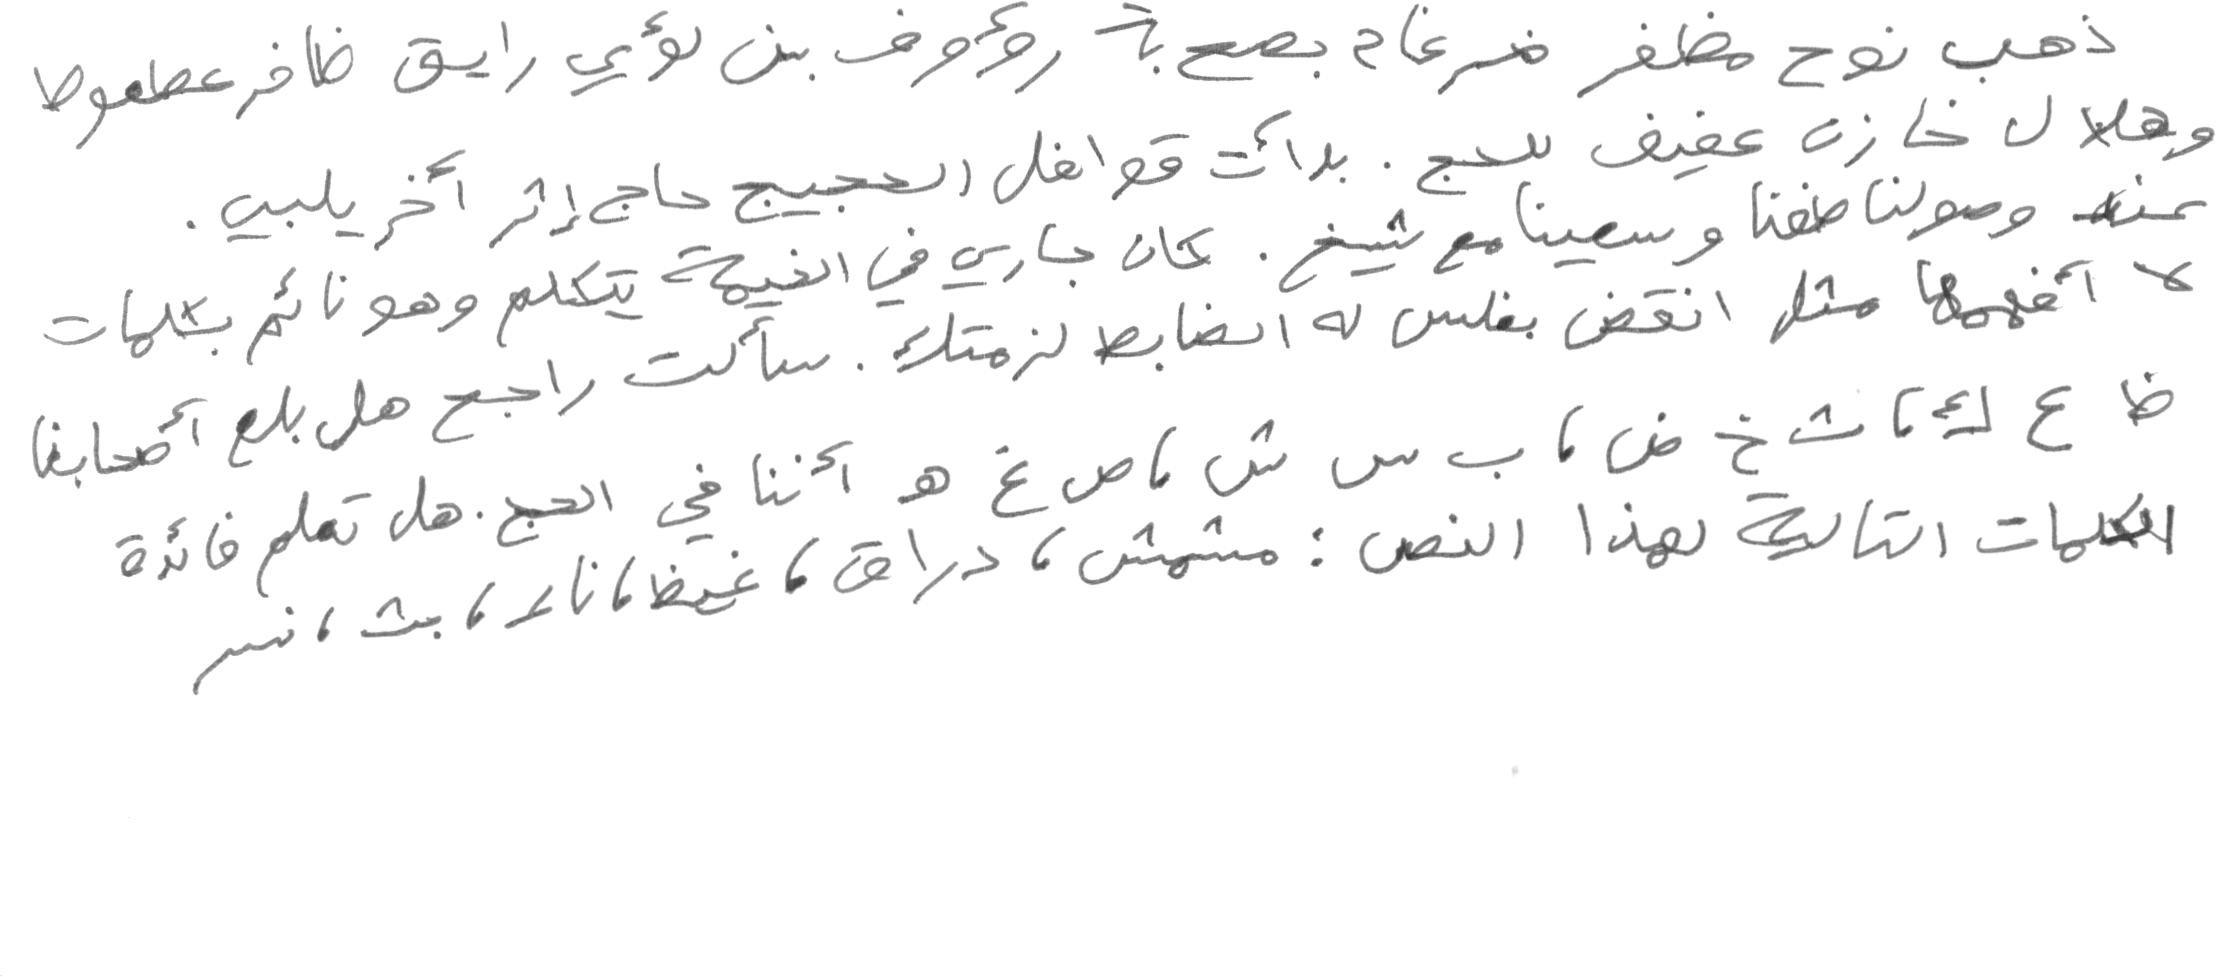 ذهب نوح مظفر ضرغام بصحبة رؤوف بن لؤي رايق ظافر عطعوط
وهلال خازن عفيف للحج . بدأت قوافل الحجيج حاج إثر أخر يلبي .
عند وصولنا طفنا وسعينا مع شيخ . كان جاري في الخيمة يتكلم وهو نائم بكلمات
لا أفهمها مثل انقض بغلس له الضابط لزمتك . سألت راجح هل بلع أصحابنا
ظ ع ك ، ث خ ض ، ب س ش ، ص غ هـ أننا في الحج . هل تعلم فائدة
الكلمات التالية لهذا النص : مشمش ، دراق ، غيظ ، ناء ، بث ، نسر